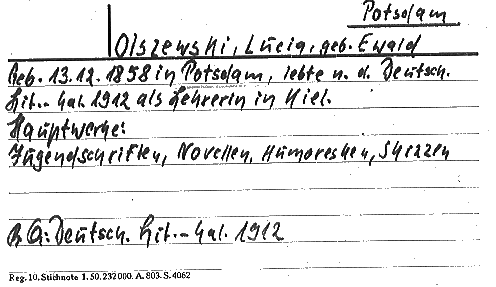 Potsdam
Olszewski, Lucia, geb. Ewald
Geb. 13.12.1858 in Potsdam, lebte n. d. Deutsch.
Lit.-Kal. 1912 als Lehrerin in Kiel.
Hauptwerke:
Jugendschriften, Novellen, Humoresken, Skizzen
Deutsch. Lit.-Kal. 1912
Reg. 10. Stichnote 1. 50. 232000. A. 803. S. 4062